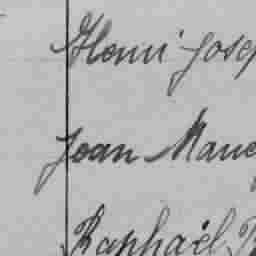 Henri Josep
Jean Marie
Raphaël